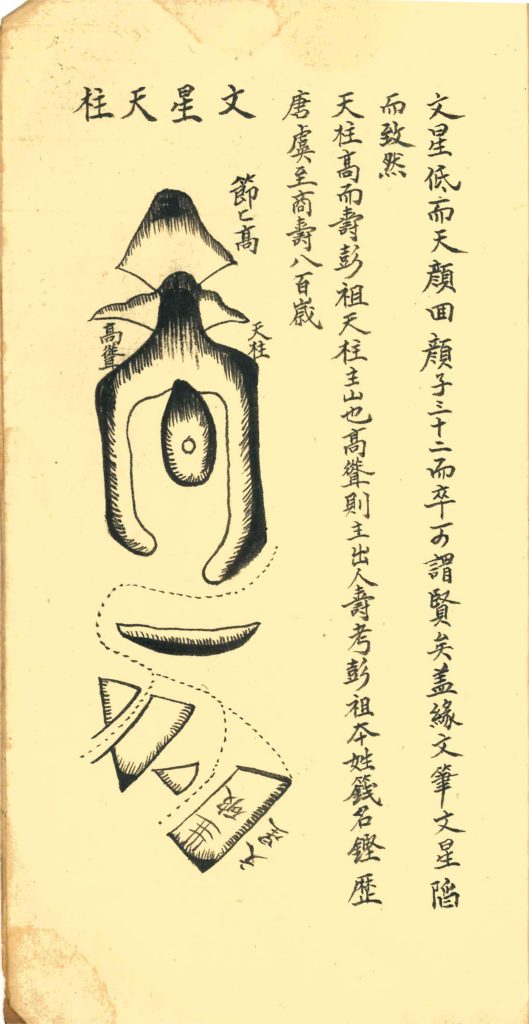 文星低而天顔囬顔子三十二而卒可謂賢矣蓋緣文筆文星陷
而致然
天柱髙而壽彭祖天柱主山也髙聳則主出人壽考彭祖夲姓籛名鏗歷
唐虞至商壽八百歳
文星天柱
節〻髙
天柱
髙聳
文星